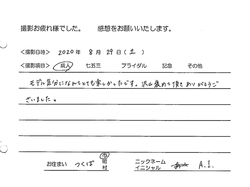 撮影お疲れ様でした。　感想をお願いいたします。
＜撮影日時＞ 2020年 8月 29日（土）
＜撮影項目＞ 成人　七五三　ブライダル　記念　その他
モデル気分になれてとても楽しかったです。沢山褒めて頂きありがとうご
ざいました。
お住まい つくば 市 町 村　ニックネーム イニシャル A.I.